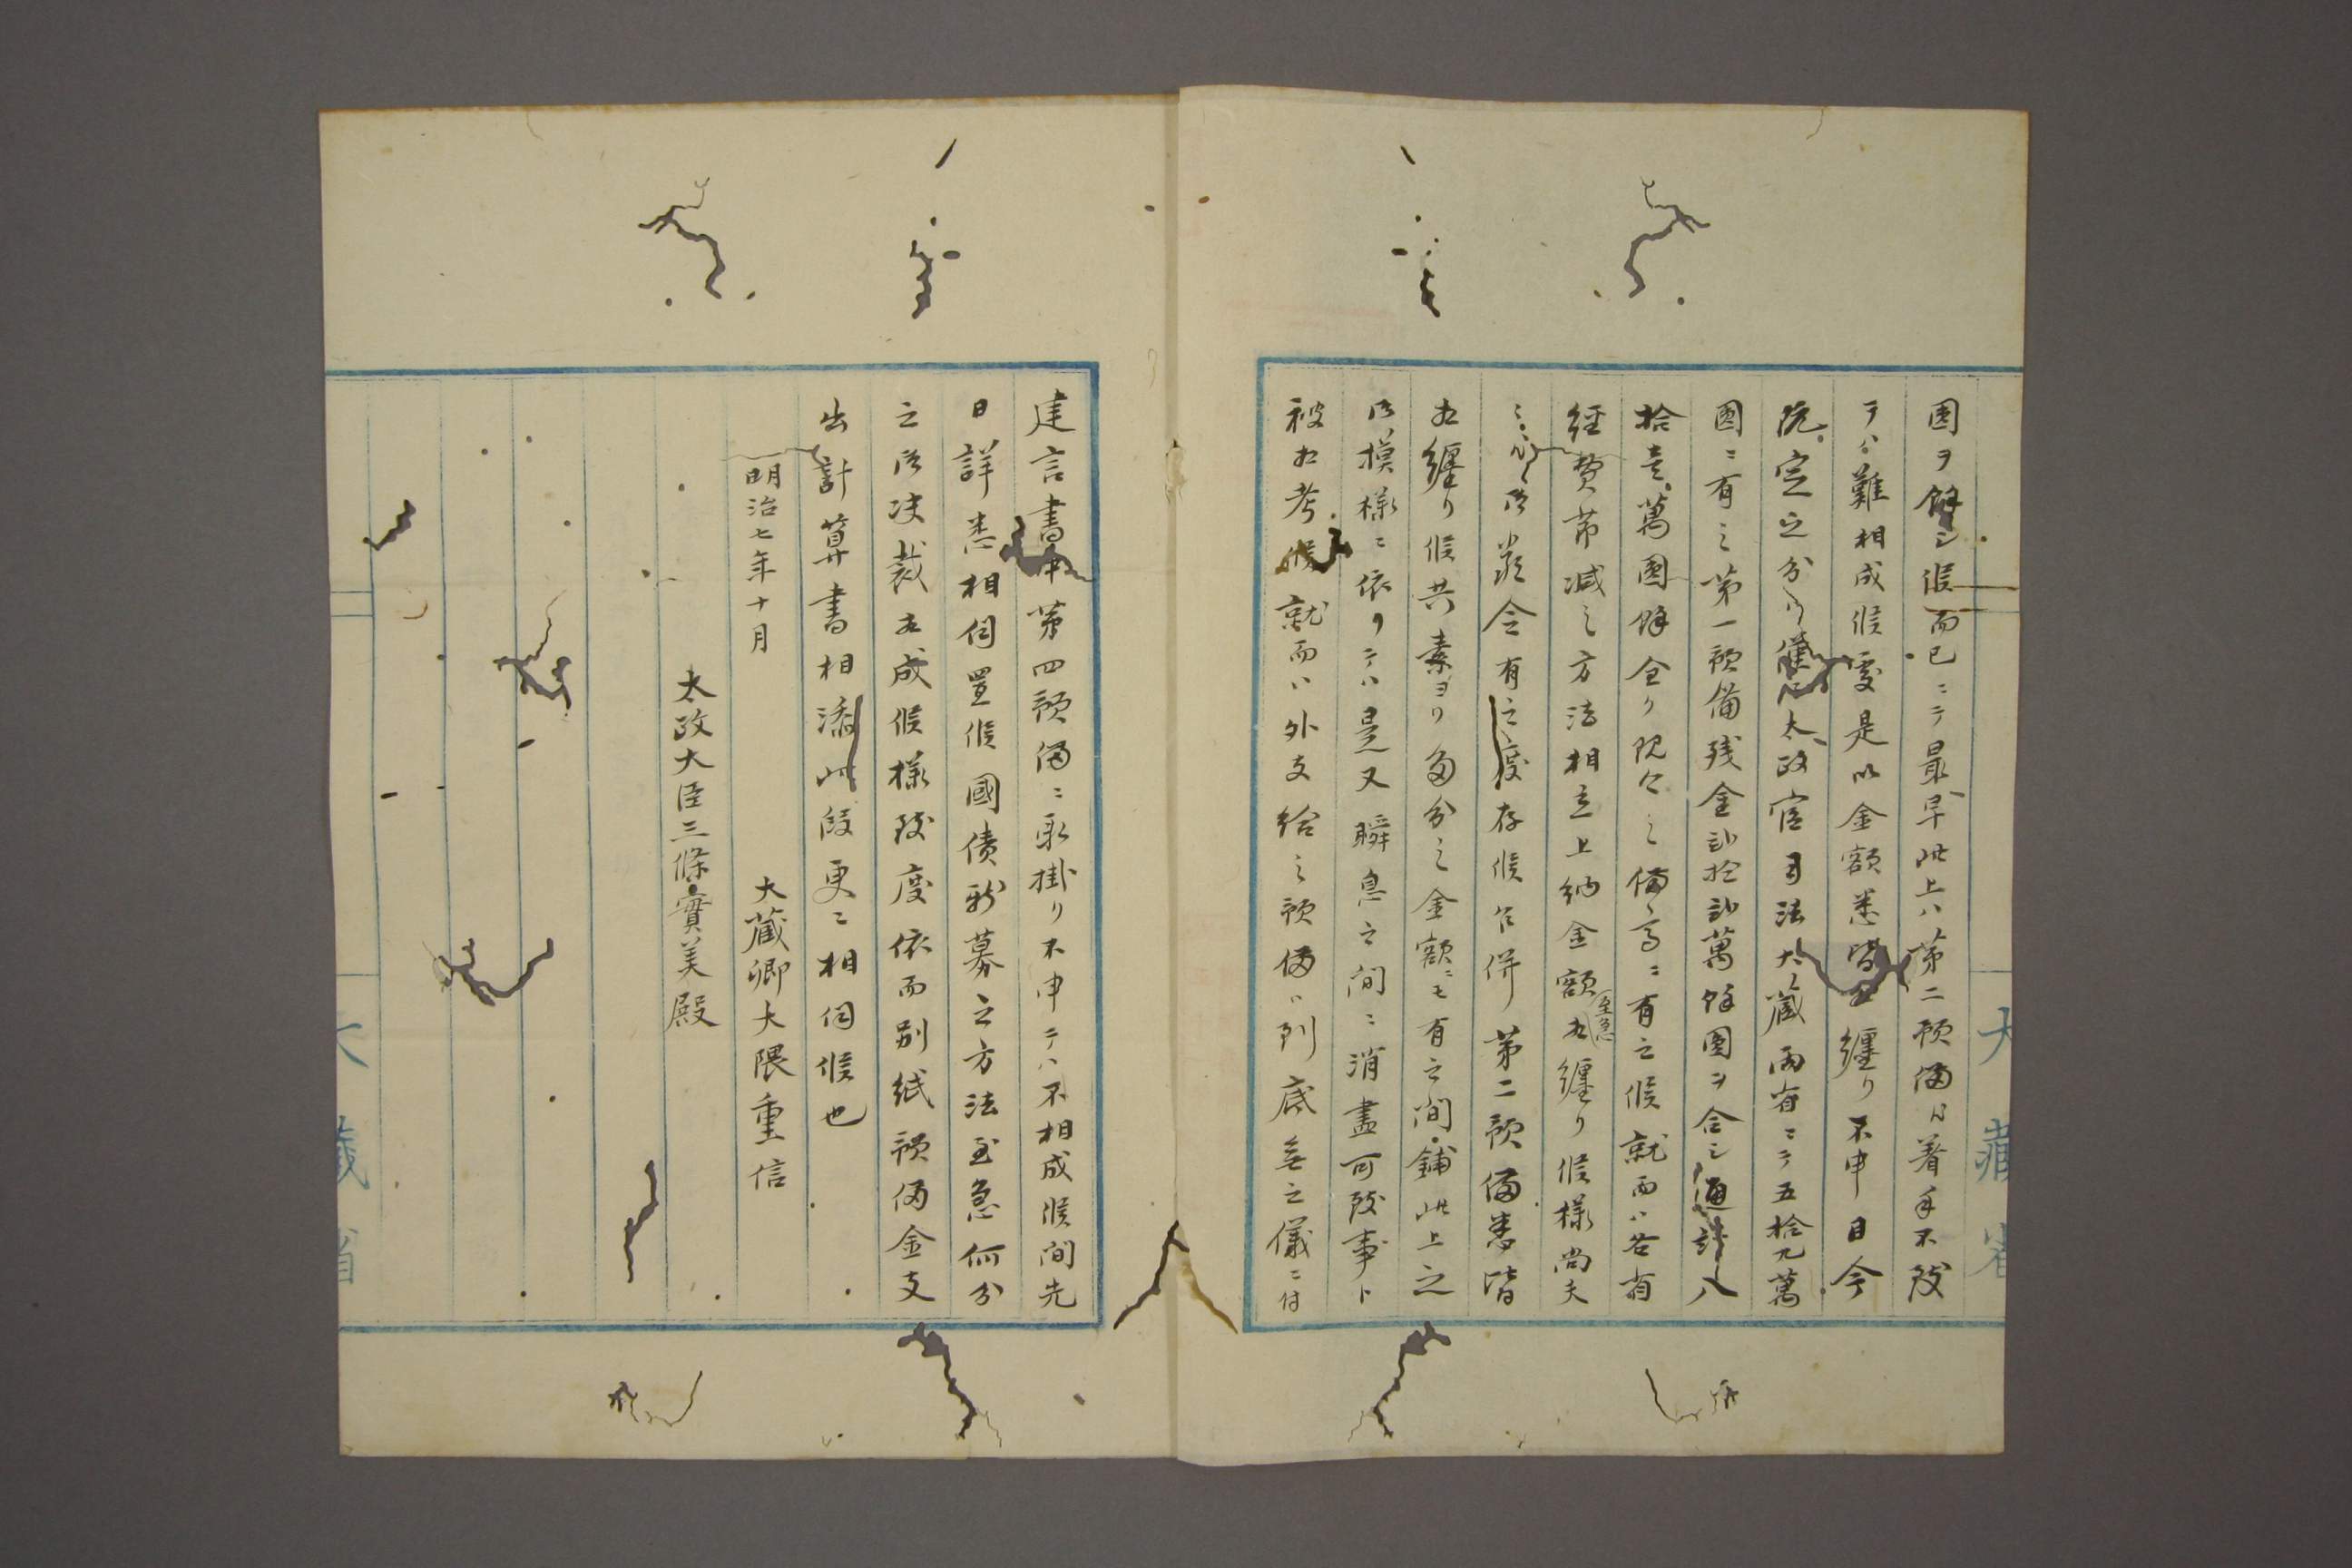 圓ヲ餘シ候而已ニテ最早此上ハ第二預備ニ着手不致
テハ難相成候處是以金額悉皆相纏リ不申目今
既定之分ハ僅ニ太政官司法大藏両省ニテ五拾九萬
圓ニ有之第一預備残金弐拾弐萬餘圓ヲ合シ通計八
拾壱萬圓餘全ク現今之備高ニ有之候就而ハ各省
経費節減之方法相立上納金額至急相纏リ候様尚夫
々御厳令有之度存候乍併第二預備悉皆
相纏リ候共素ヨリ多分之金額ニモ有之間鋪此上之
御模様ニ依リテハ是又瞬息之間ニ消盡可致事ト
被相考候就而ハ外支給之預備ハ到底無之儀ニ付
建言書中第四預備ニ取掛リ不申テハ不相成候間先
日詳悉相伺置候國債新募之方法至急何分
之御决裁相成候様致度依而別紙預備金支
出計算書相添此段更ニ相伺候也
明治七年十月
大藏卿大隈重信
太政大臣三條實美殿
大藏省
大藏省